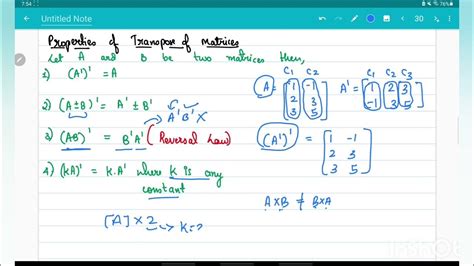 7:54
76%
Untitled Note
30
Properties of Transpose of Matrices
Let A and B be two matrices then,
1) (A')' = A
2) (A±B)' = A' ± B'
A'B' X
3) (AB)' = B'A' (Reversal Law)
4) (kA)' = k.A' where k is any
constant
[A] × 2 → k=2
C₁ C₂
A = [1 -1
2 3
3 5]
C₁ C₂ C₃
A' = [1 2 3
-1 3 5]
(A')' = [1 -1
2 3
3 5]
A×B ≠ B×A